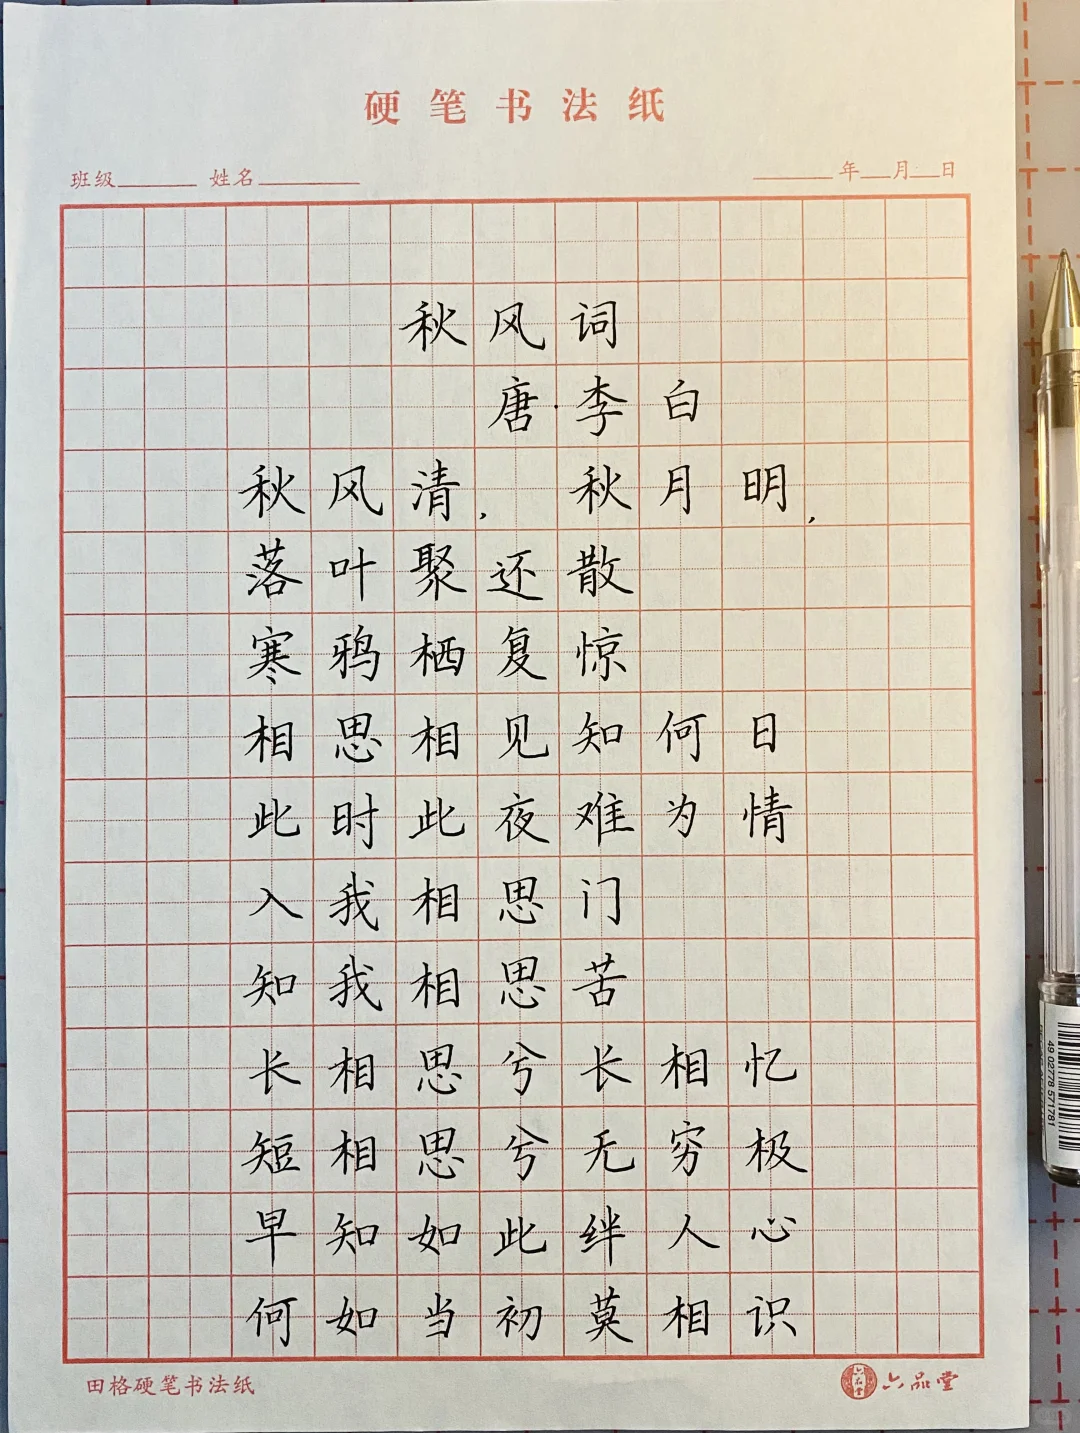 硬笔书法纸
班级 姓名 年 月 日
秋风词
唐·李白
秋风清，秋月明，
落叶聚还散
寒鸦栖复惊
相思相见知何日
此时此夜难为情
入我相思门
知我相思苦
长相思兮长相忆
短相思兮无穷极
早知如此绊人心
何如当初莫相识
田格硬笔书法纸
六品堂 六品堂
49 02778 571781